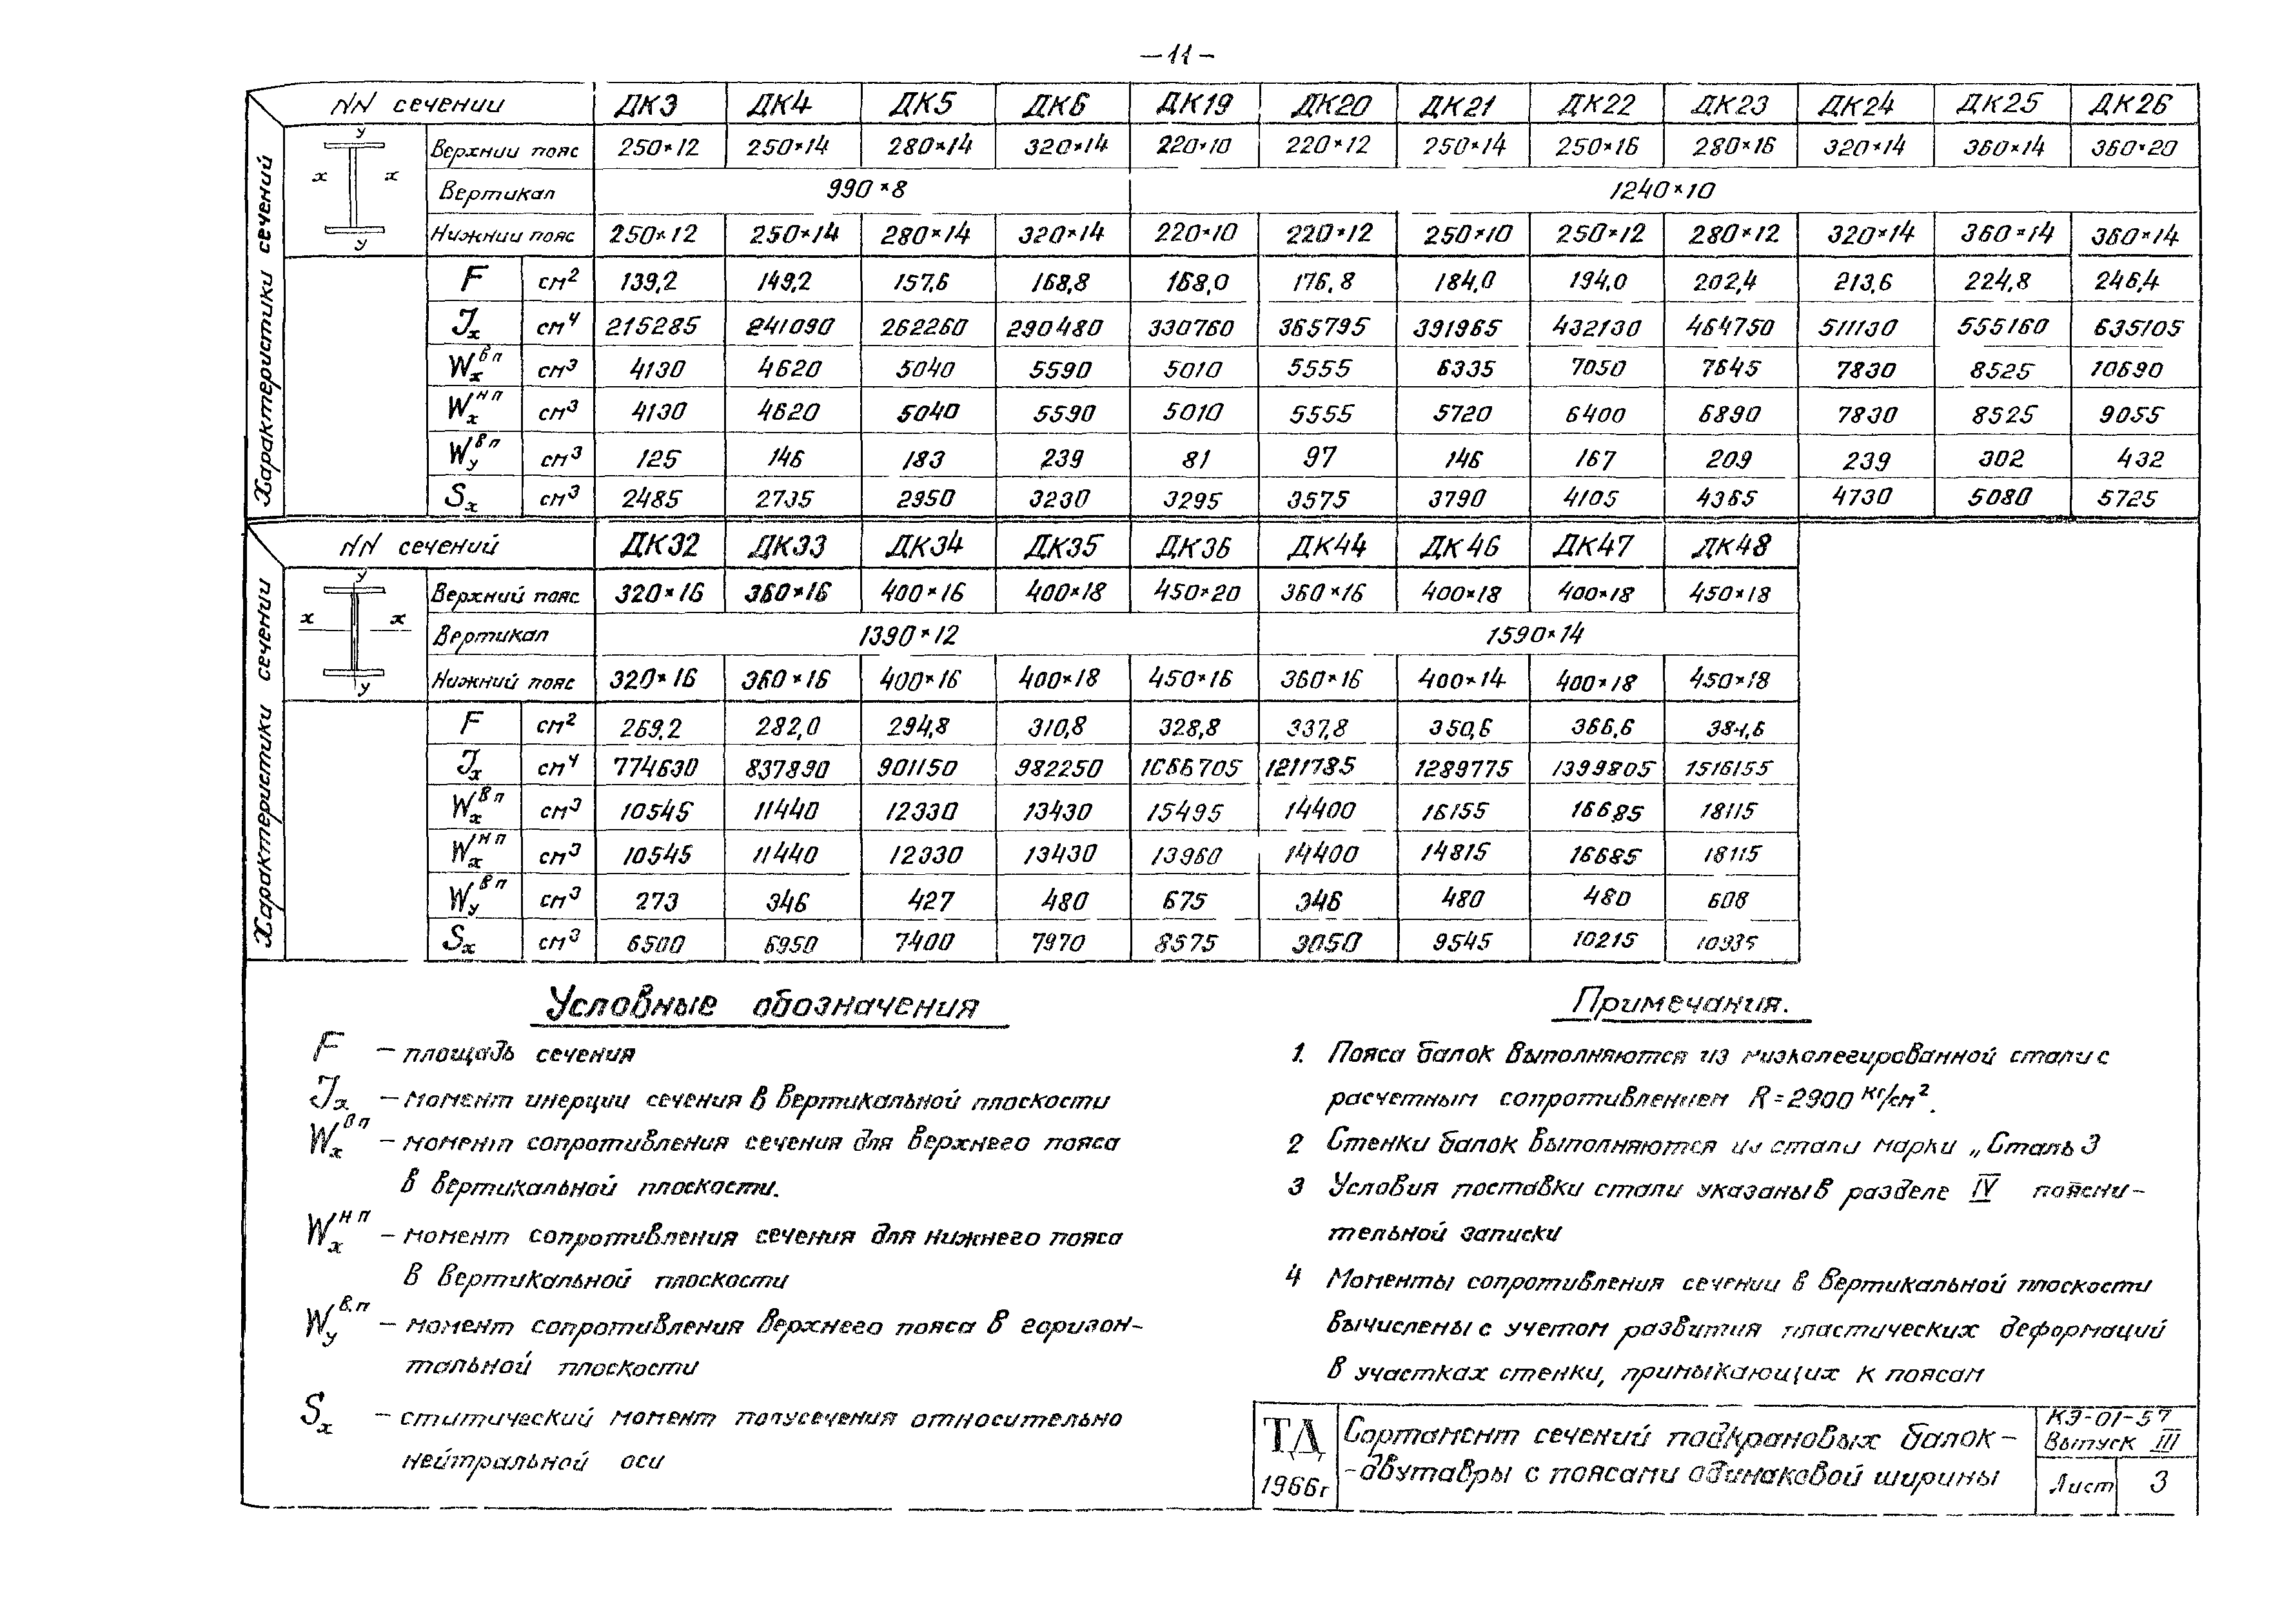 –11–
NN сечении ДК3 ДК4 ДК5 ДК6 ДК19 ДК20 ДК21 ДК22 ДК23 ДК24 ДК25 ДК26
Характеристики сечений
у х х у
Верхнии пояс 250×12 250×14 280×14 320×14 220×10 220×12 250×14 250×16 280×16 320×14 360×14 360×20
Вертикал 990×8 1240×10
Нижнии пояс 250×12 250×14 280×14 320×14 220×10 220×12 250×10 250×12 280×12 320×14 360×14 360×14
F см² 139,2 149,2 157,6 168,8 168,0 176,8 184,0 194,0 202,4 213,6 224,8 246,4
Jx см⁴ 215285 241090 262260 290480 330760 365795 391965 432130 464750 511130 555160 635105
Wx вп см³ 4130 4620 5040 5590 5010 5555 6335 7050 7645 7830 8525 10690
Wx нп см³ 4130 4620 5040 5590 5010 5555 5720 6400 6890 7830 8525 9055
Wу вп см³ 125 146 183 239 81 97 146 167 209 239 302 432
Sx см³ 2485 2735 2950 3230 3295 3575 3790 4105 4365 4730 5080 5725
NN сечений ДК32 ДК33 ДК34 ДК35 ДК36 ДК44 ДК46 ДК47 ДК48
Характеристики сечении
у х х у
Верхний пояс 320×16 360×16 400×16 400×18 450×20 360×16 400×18 400×18 450×18
Вертикал 1390×12 1590×14
Нижний пояс 320×16 360×16 400×16 400×18 450×16 360×16 400×14 400×18 450×18
F см² 269,2 282,0 294,8 310,8 328,8 337,8 350,6 366,6 384,6
Jx см⁴ 774630 837890 901150 982250 1066705 1211785 1289775 1399805 1516155
Wx вп см³ 10545 11440 12330 13430 15495 14400 16155 16685 18115
Wx нп см³ 10545 11440 12330 13430 13960 14400 14815 16685 18115
Wу вп см³ 273 346 427 480 675 346 480 480 608
Sx см³ 6500 6950 7400 7970 8575 9050 9545 10215 10935
Условные обозначения
F – площадь сечения
Jx – момент инерции сечения в вертикальной плоскости
Wx вп – момент сопротивления сечения для верхнего пояса
в вертикальной плоскости.
Wx нп – момент сопротивления сечения для нижнего пояса
в вертикальной плоскости
Wу в.п – момент сопротивления верхнего пояса в горизон-
тальной плоскости
Sx – статический момент полусечения относительно
нейтральной оси
Примечания.
1. Пояса балок выполняются из низколегированной стали с
расчетным сопротивлением R=2900 кг/см².
2 Стенки балок выполняются из стали марки „Сталь 3
3 Условия поставки стали указаны в разделе IV поясни-
тельной записки
4 Моменты сопротивления сечении в вертикальной плоскости
вычислены с учетом развития пластических деформаций
в участках стенки, примыкающих к поясам
ТД
1966г
Сортамент сечений подкрановых балок –
-двутавры с поясами одинаковой ширины
КЭ-01-57
Выпуск III
Лист 3